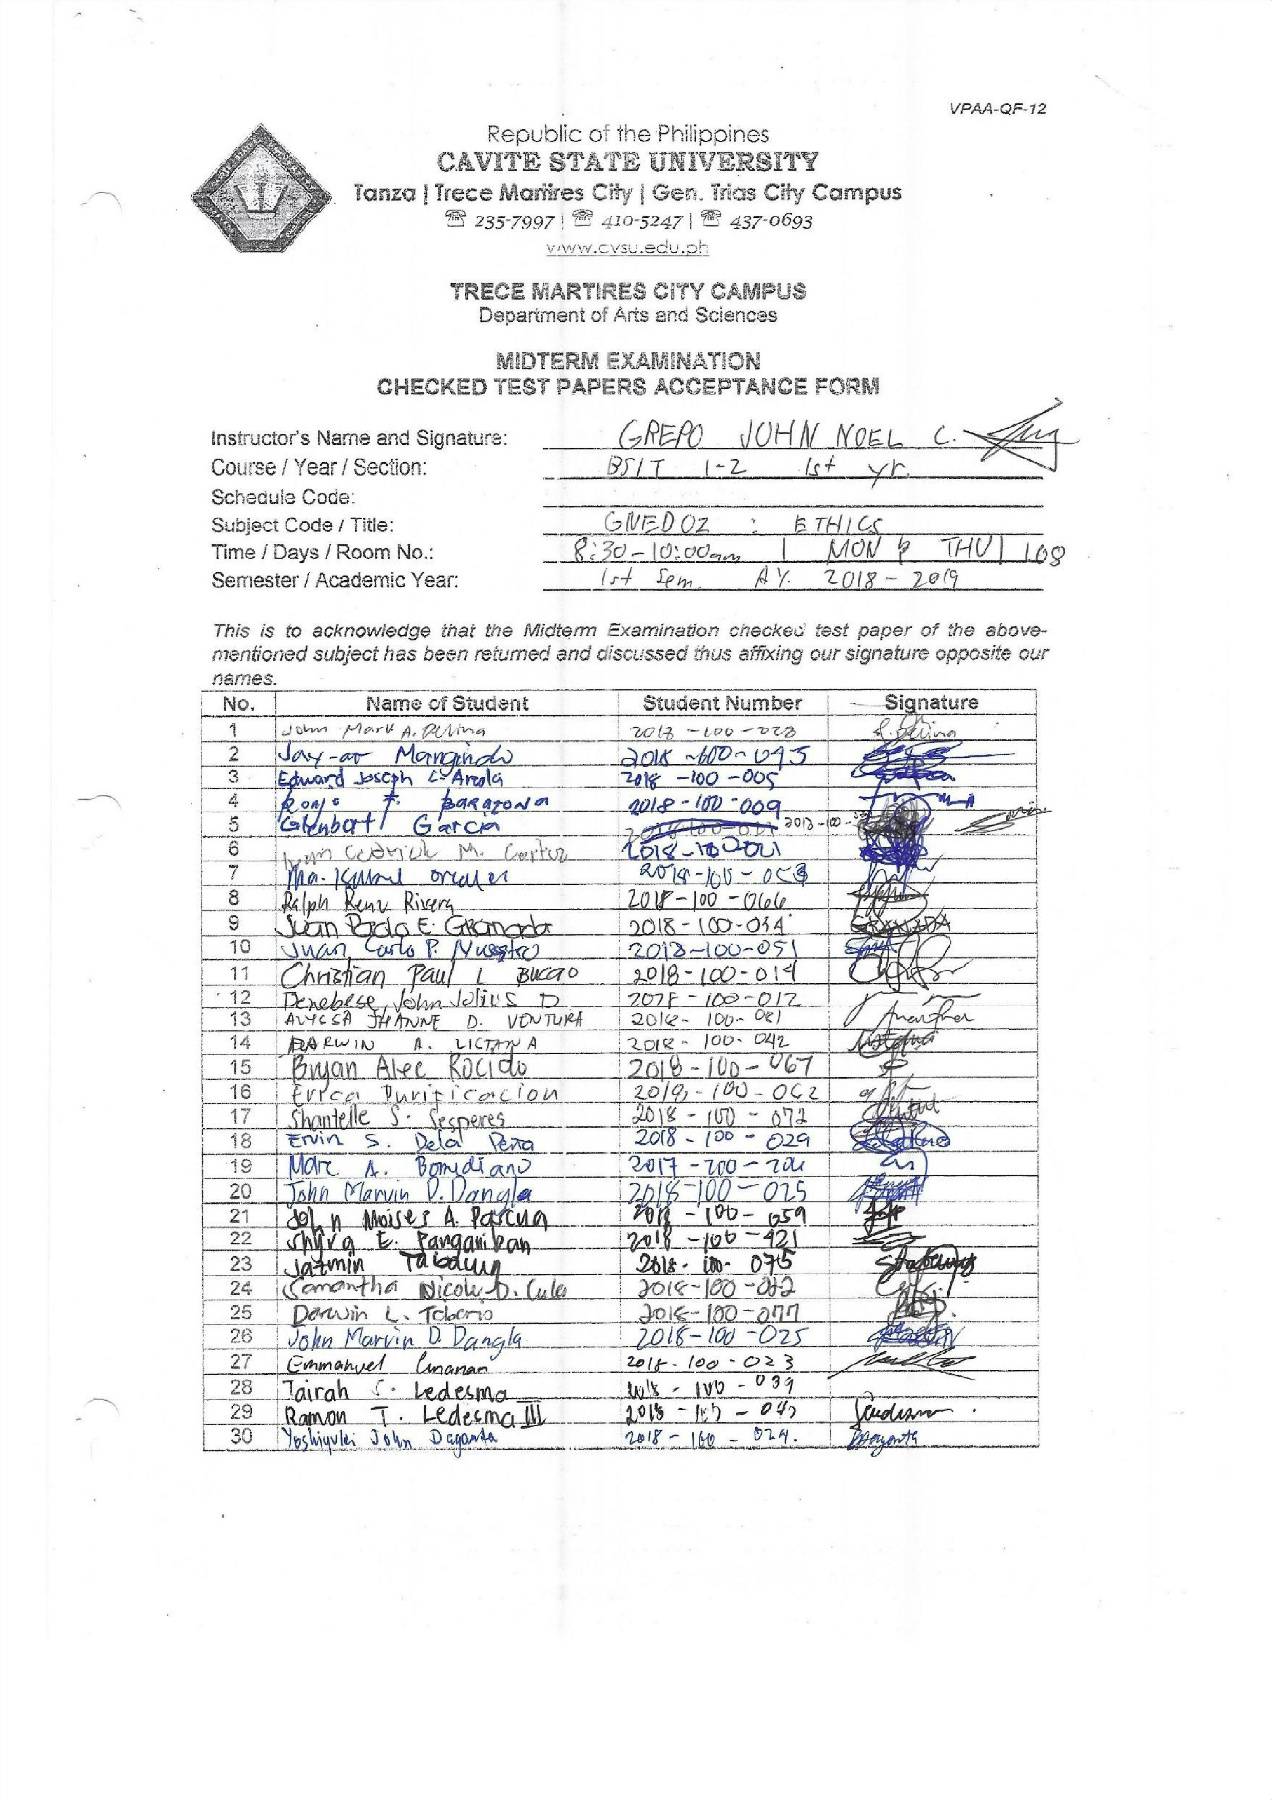 VPAA-QF-12
Republic of the Philippines
CAVITE STATE UNIVERSITY
Tanza | Trece Martires City | Gen. Trias City Campus
☏ 235-7997 | ☏ 410-5247 | ☏ 437-0693
www.cvsu.edu.ph
TRECE MARTIRES CITY CAMPUS
Department of Arts and Sciences
MIDTERM EXAMINATION
CHECKED TEST PAPERS ACCEPTANCE FORM
Instructor's Name and Signature: GREPO JOHN NOEL C.
Course / Year / Section: BSIT 1-2 1st yr.
Schedule Code:
Subject Code / Title: GNED02 : ETHICS
Time / Days / Room No.: 8:30-10:00am | MON & THU | 108
Semester / Academic Year: 1st Sem. AY. 2018-2019
This is to acknowledge that the Midterm Examination checked test paper of the above-
mentioned subject has been returned and discussed thus affixing our signature opposite our
names.
No. Name of Student Student Number Signature
1 John Mark A. 2018-100-028
2 Jay-ar 2018-100-045
3 Edward Joseph C. Areola 2018-100-005
4 F. BARATONA 2018-100-009
5 Glenbert Garcia
6 Cedrick M. 2018-100-021
7 Ma. 2018-100-053
8 Ralph Renz Rivera 2018-100-066
9 Juan Paolo E. Granada 2018-100-034 GRANADA
10 Juan Carlo P. Nuestro 2018-100-051
11 Christian Paul L BUCAO 2018-100-014
12 Denebese, John Julius D 2018-100-012
13 ALYSSA JHANNE D. VENTURA 2018-100-081
14 DARWIN A. LICTANA 2018-100-042
15 Bryan Alec Rocido 2018-100-067
16 Erica Purificacion 2018-100-062
17 Shantelle S. Sesperes 2018-100-072
18 Ervin S. Dela Peña 2018-100-029
19 Marc A. Bomediano 2017-200-
20 John Marvin D. Dangla 2018-100-025
21 John Moises A. Pascua 2018-100-059
22 Shyra E. Panganiban 2018-100-421
23 Jazmin 2018-100-075
24 Samantha Nicole D. 2018-100-022
25 Darwin L. Toborio 2018-100-077
26 John Marvin D. Dangla 2018-100-025
27 Emmanuel 2018-100-023
28 Tairah S. Ledesma 2018-100-039
29 Ramon T. Ledesma III 2018-100-040
30 John Daganta 2018-100-024.